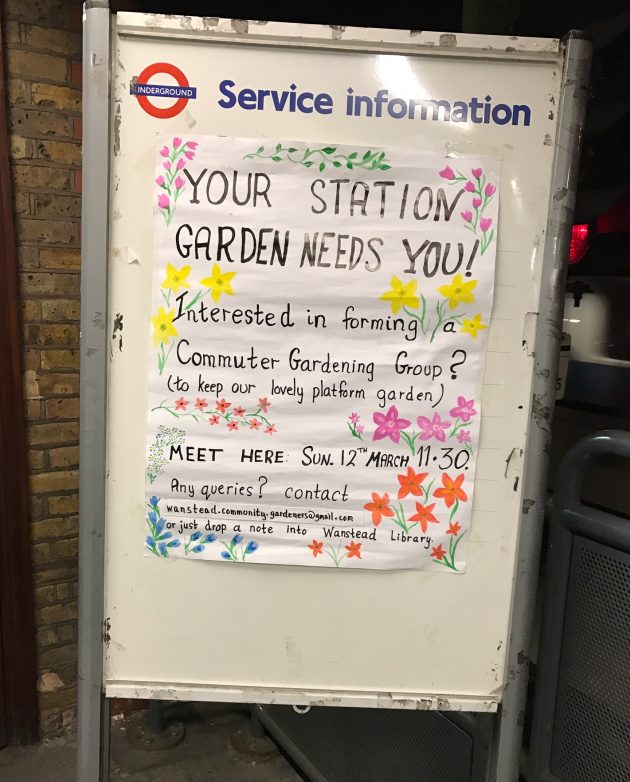 UNDERGROUND
Service information
YOUR STATION
GARDEN NEEDS YOU!
Interested in forming a
Commuter Gardening Group?
(to keep our lovely platform garden)
MEET HERE: SUN. 12TH MARCH 11·30.
Any queries? contact
wanstead.community.gardeners@gmail.com
or just drop a note into Wanstead Library.